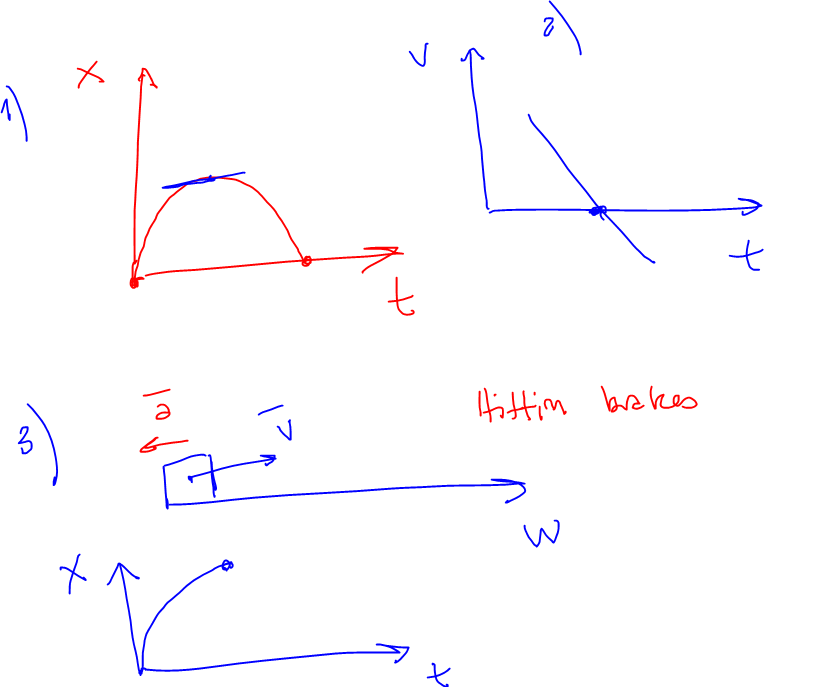 1)
x
t
2)
v
t
3)
a
v
Hittin brakes
W
x
t